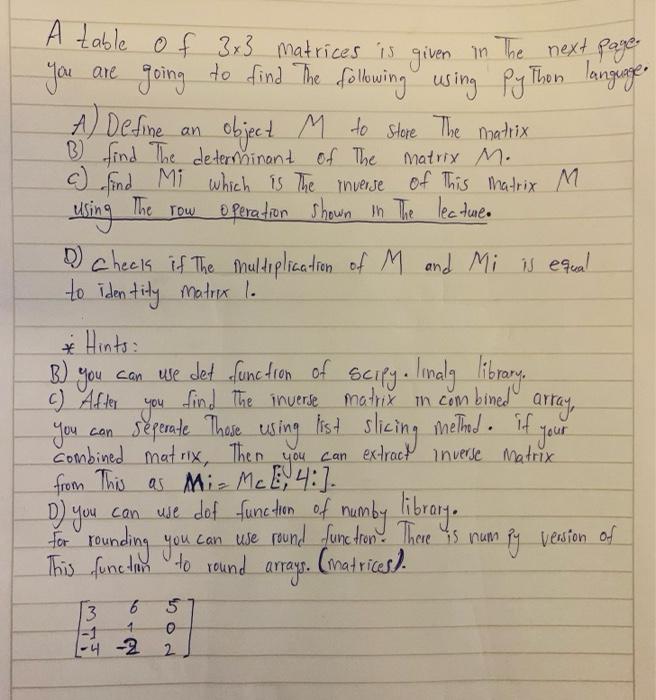 A table of 3x3 matrices is given in The next page.
you are going to find The following using Python language.
A) Define an object M to store The matrix
B) find The determinant of The matrix M.
C) find Mi which is The inverse of This matrix M
using The row operation shown in The lecture.
D) check if The multiplication of M and Mi is equal
to identity matrix I.
* Hints:
B) you can use det function of scipy.linalg library.
C) After you find The inverse matrix in combined array,
you can seperate Those using list slicing method. if your
combined matrix, Then you can extract inverse matrix
from This as Mi = Mc[:, 4:].
D) you can use dof function of numby library.
for rounding you can use round function. There is num py version of
This function to round arrays. (matrices).
3 6 5
-1 1 0
-4 -2 2